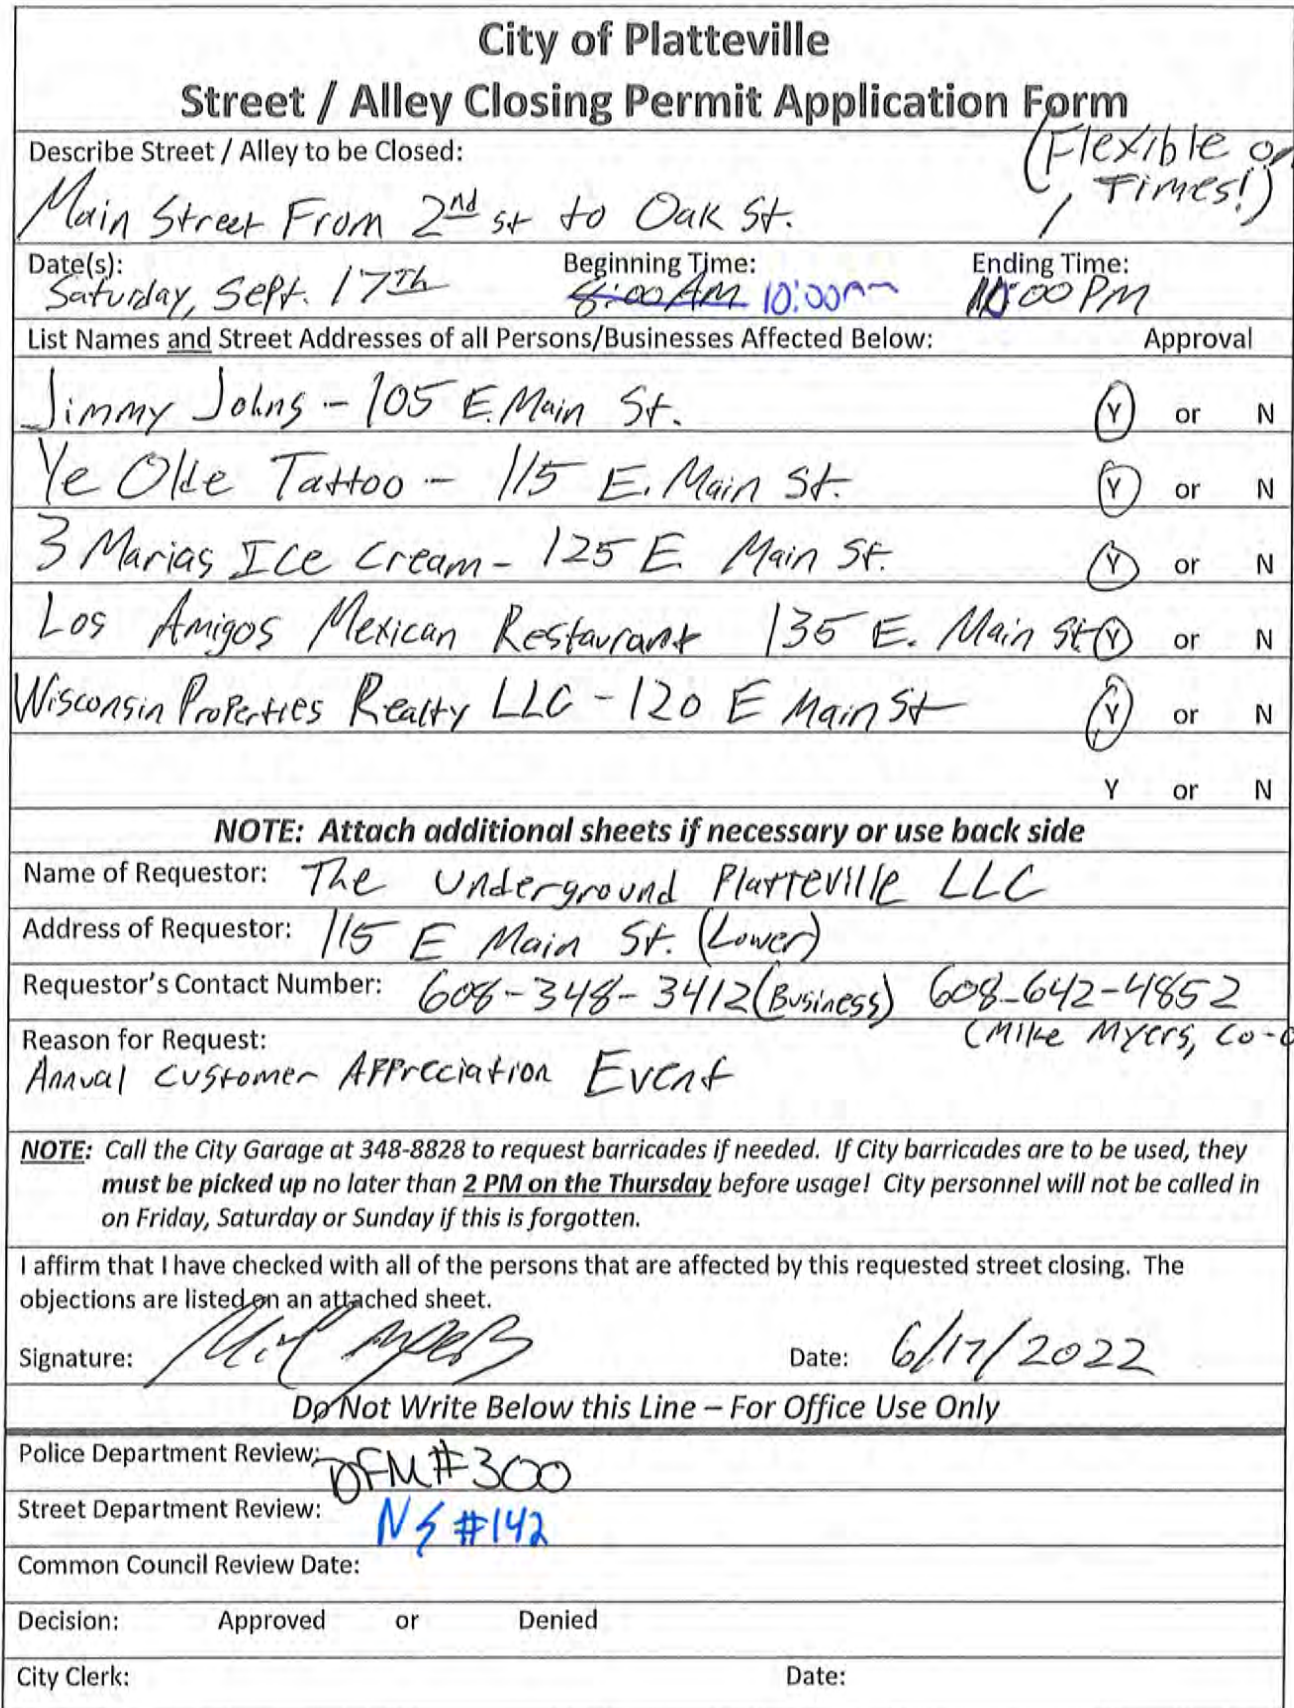 City of Platteville
Street / Alley Closing Permit Application Form
Describe Street / Alley to be Closed:
(Flexible on
Times!)
Main Street From 2nd St to Oak St.
Date(s): Beginning Time: Ending Time:
Saturday, Sept. 17Th 8:00 AM 10:00am 10:00 PM
List Names and Street Addresses of all Persons/Businesses Affected Below: Approval
Jimmy Johns - 105 E. Main St. Y or N
Ye Olde Tattoo - 115 E. Main St. Y or N
3 Marias Ice Cream - 125 E. Main St. Y or N
Los Amigos Mexican Restaurant 135 E. Main St Y or N
Wisconsin Properties Realty LLC - 120 E Main St Y or N
Y or N
NOTE: Attach additional sheets if necessary or use back side
Name of Requestor: The Underground Platteville LLC
Address of Requestor: 115 E Main St. (Lower)
Requestor's Contact Number: 608-348-3412 (Business) 608-642-4852
(Mike Myers, Co-o
Reason for Request:
Annual Customer Appreciation Event
NOTE: Call the City Garage at 348-8828 to request barricades if needed. If City barricades are to be used, they
must be picked up no later than 2 PM on the Thursday before usage! City personnel will not be called in
on Friday, Saturday or Sunday if this is forgotten.
I affirm that I have checked with all of the persons that are affected by this requested street closing. The
objections are listed on an attached sheet.
Signature: Date: 6/17/2022
Do Not Write Below this Line – For Office Use Only
Police Department Review: DFM #300
Street Department Review: #142
Common Council Review Date:
Decision: Approved or Denied
City Clerk: Date: